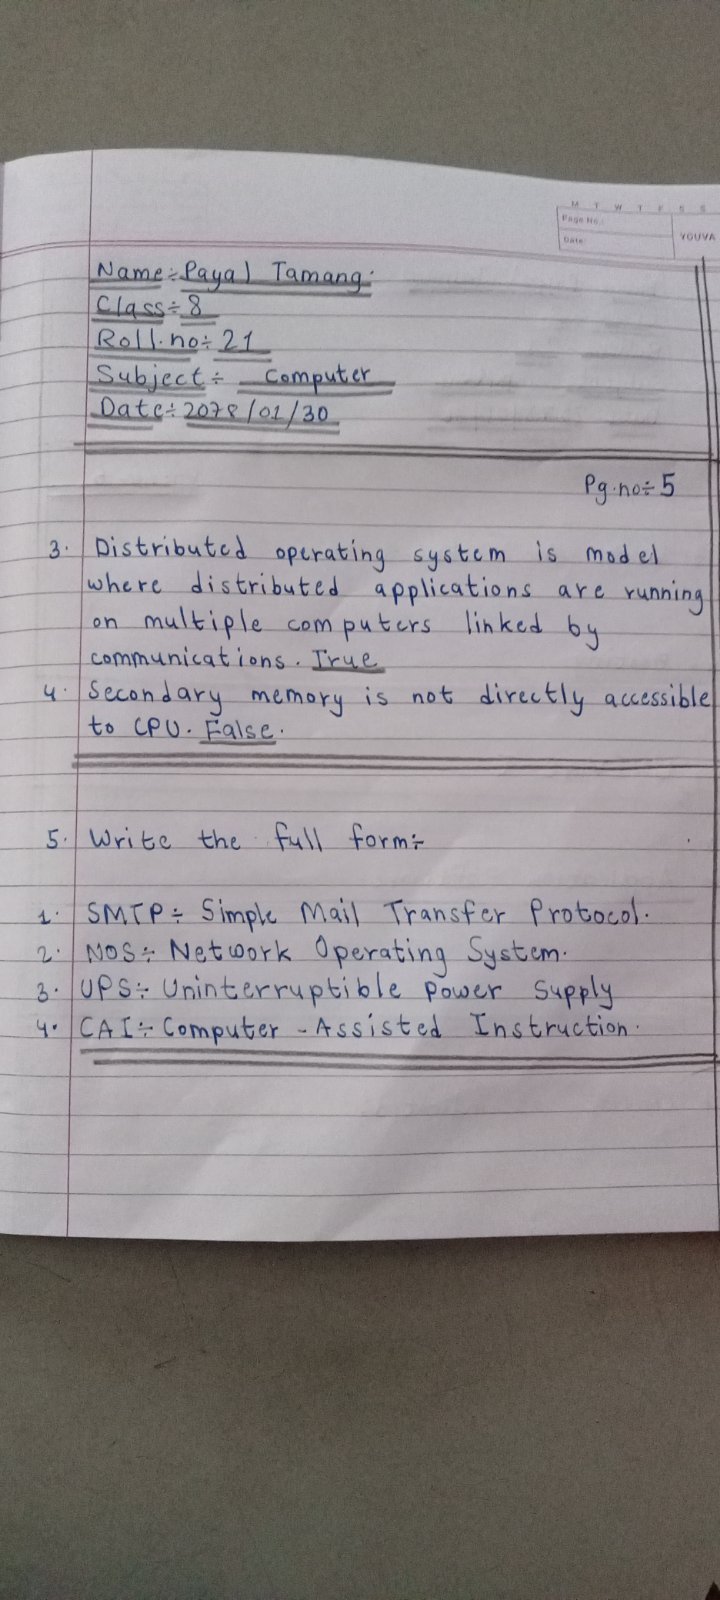 M T W T F S S
Page No.:
Date:
YOUVA
Name÷ Payal Tamang.
Class÷ 8
Roll.no÷ 21
Subject÷ computer
Date÷ 2078/01/30
Pg.no÷ 5
3. Distributed operating system is model
where distributed applications are running
on multiple computers linked by
communications. True
4. Secondary memory is not directly accessible
to CPU. False.
5. Write the full form÷
1. SMTP÷ Simple Mail Transfer Protocol.
2. NOS÷ Network Operating System.
3. UPS÷ Uninterruptible power supply
4. CAI÷ Computer - Assisted Instruction.